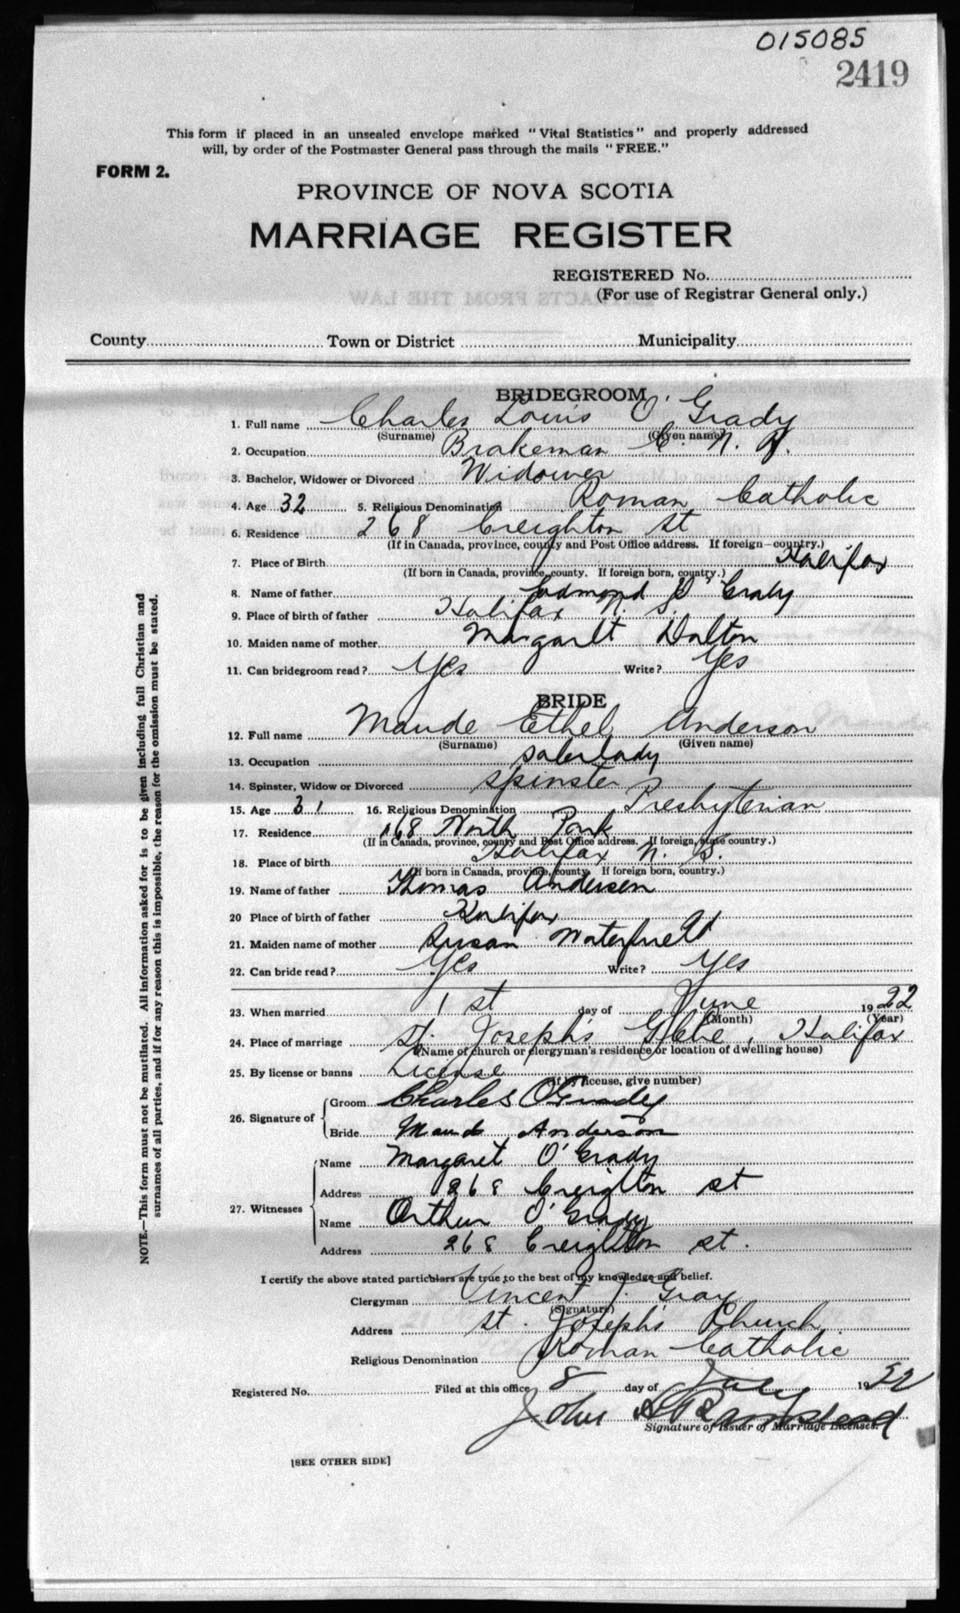 015085
2419
This form if placed in an unsealed envelope marked "Vital Statistics" and properly addressed
will, by order of the Postmaster General pass through the mails "FREE."
FORM 2.
PROVINCE OF NOVA SCOTIA
MARRIAGE REGISTER
REGISTERED No.
(For use of Registrar General only.)
County Town or District Municipality
BRIDEGROOM
1. Full name Charles Louis O'Grady
(Surname) (Given name)
2. Occupation Brakeman C. N. R.
3. Bachelor, Widower or Divorced Widower
4. Age 32 5. Religious Denomination Roman Catholic
6. Residence 268 Creighton St
(If in Canada, province, county and Post Office address. If foreign—country.)
7. Place of Birth Halifax
(If born in Canada, province, county. If foreign born, country.)
8. Name of father Edmond O'Grady
9. Place of birth of father Halifax N. S.
10. Maiden name of mother Margaret Dalton
11. Can bridegroom read? Yes Write? Yes
BRIDE
12. Full name Maude Ethel Anderson
(Surname) (Given name)
13. Occupation Saleslady
14. Spinster, Widow or Divorced Spinster
15. Age 31 16. Religious Denomination Presbyterian
17. Residence 168 North Park
(If in Canada, province, county and Post Office address. If foreign, state country.)
18. Place of birth Halifax N. S.
(If born in Canada, province, county. If foreign born, country.)
19. Name of father Thomas Anderson
20 Place of birth of father Halifax
21. Maiden name of mother Susan Waterfield
22. Can bride read? Yes Write? Yes
23. When married 1st day of June 1922
(Month) (Year)
24. Place of marriage St. Joseph's Glebe, Halifax
(Name of church or clergyman's residence or location of dwelling house)
25. By license or banns License
(If by license, give number)
26. Signature of Groom Charles O'Grady
Bride Maude Anderson
27. Witnesses Name Margaret O'Grady
Address 268 Creighton st
Name Arthur O'Grady
Address 268 Creighton st.
I certify the above stated particulars are true to the best of my knowledge and belief.
Clergyman Vincent J. Gray
(Signature)
Address St. Joseph's Church
Religious Denomination Roman Catholic
Registered No. Filed at this office 8 day of July 1922
John
Signature of Issuer of Marriage Licenses.
[SEE OTHER SIDE]
NOTE.—This form must not be mutilated. All information asked for is to be given including full Christian and
surnames of all parties, and if for any reason this is impossible, the reason for the omission must be stated.